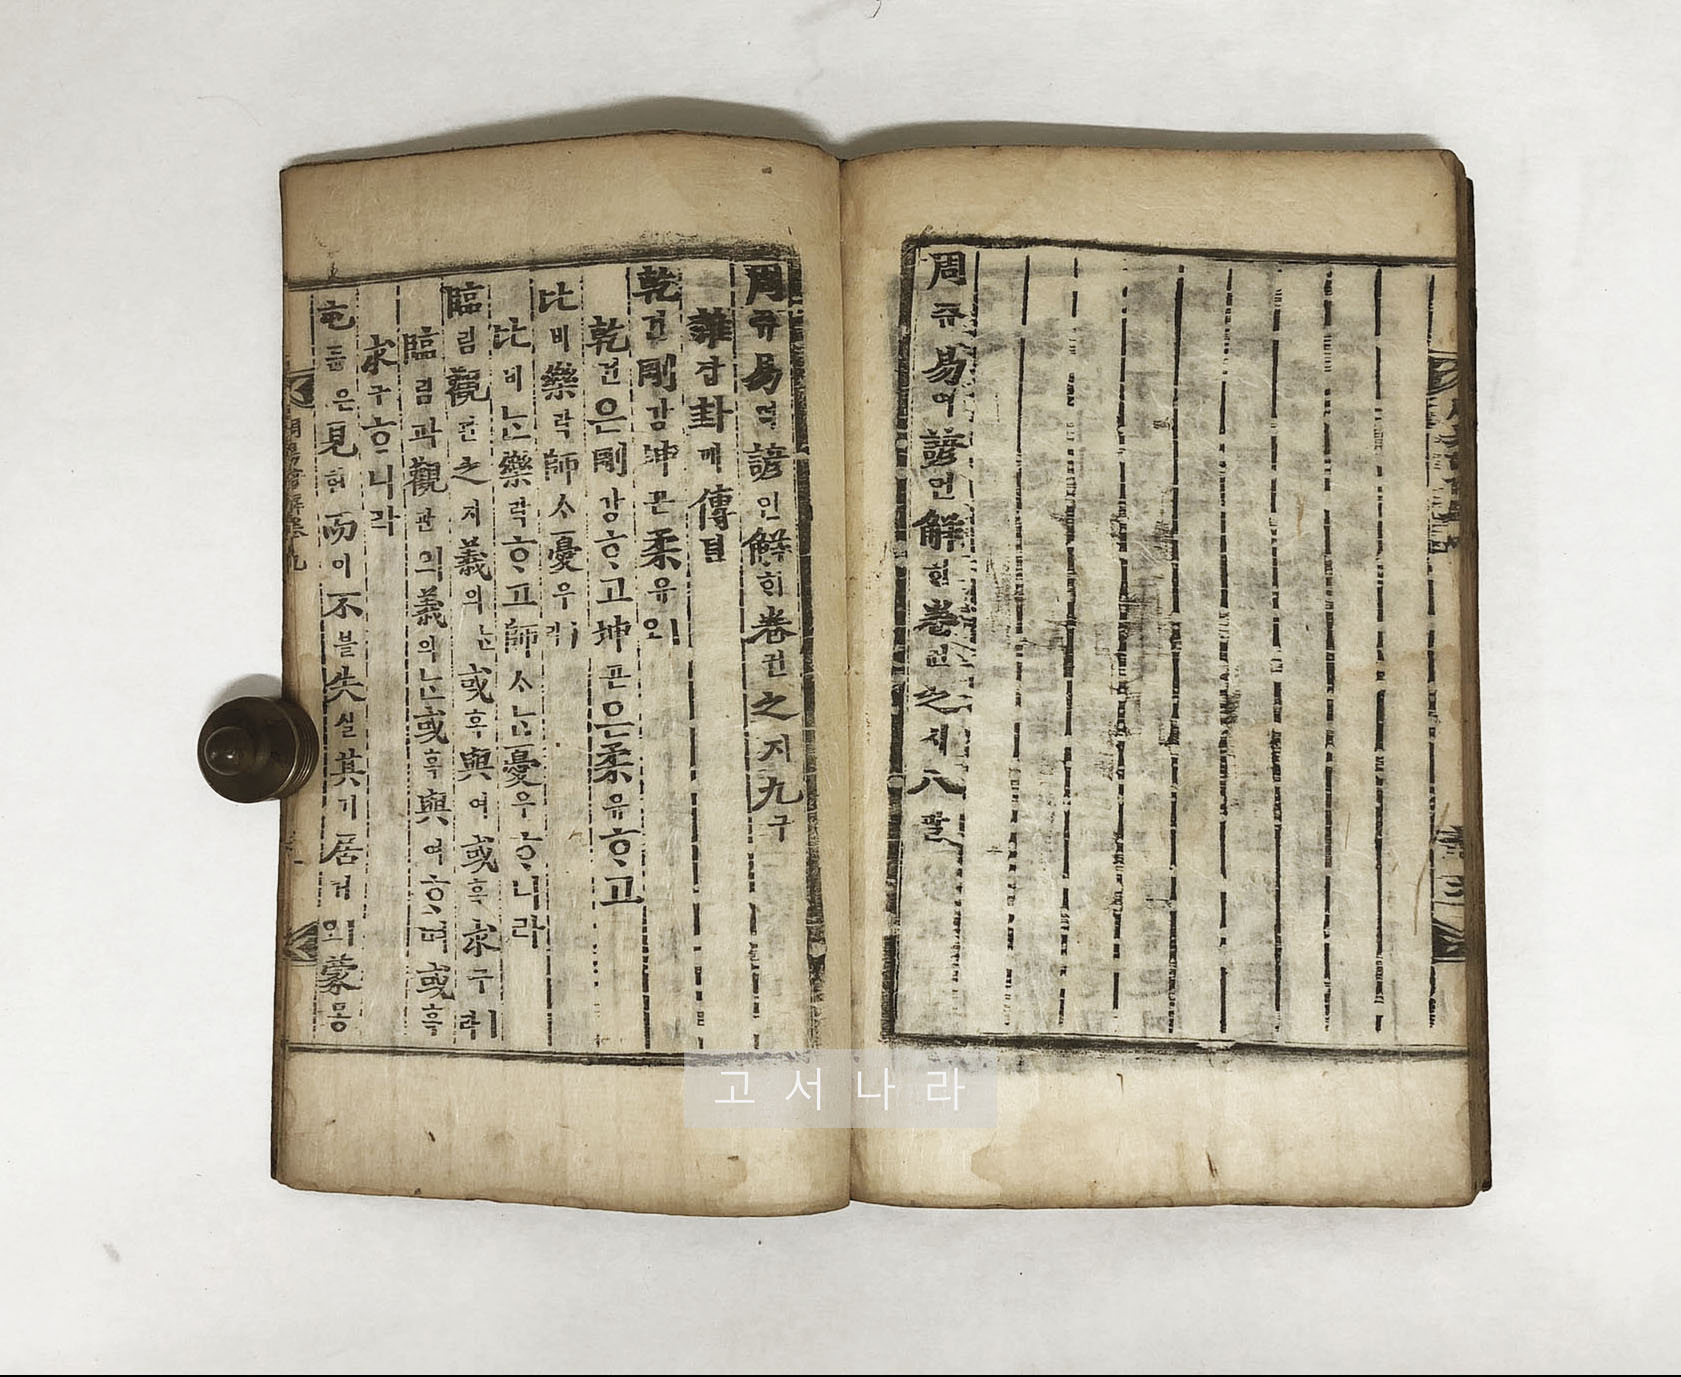 周쥬易역諺언解ᄒᆡ卷권之지八팔
周쥬易역諺언解ᄒᆡ卷권之지九구
雜잡卦괘傳뎐
乾건剛강坤곤柔유ㅣ오
乾건은剛강ᄒᆞ고坤곤은柔유ᄒᆞ고
比비樂락師ᄉᆞ憂우ㅣ라
比비ᄂᆞᆫ樂락ᄒᆞ고師ᄉᆞᄂᆞᆫ憂우ᄒᆞ니라
臨림觀관之지義의ᄂᆞᆫ或혹與여或혹求구ㅣ라
臨림과觀관의義의ᄂᆞᆫ或혹與여ᄒᆞ며或혹
求구ᄒᆞ니라
屯듄은見현而이不블失실其기居거ㅣ오蒙몽
周易諺解卷九
고서나라